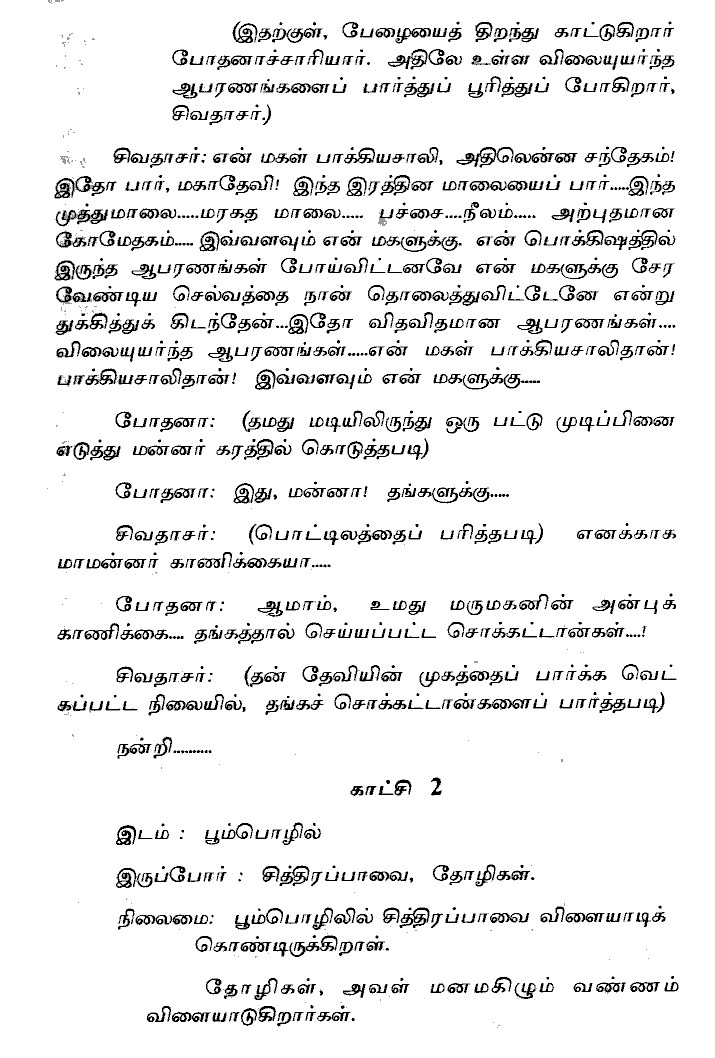 (இதற்குள், பேழையைத் திறந்து காட்டுகிறார்
போதனாச்சாரியார். அதிலே உள்ள விலையுயர்ந்த
ஆபரணங்களைப் பார்த்துப் பூரித்துப் போகிறார்,
சிவதாசர்.)
சிவதாசர்: என் மகள் பாக்கியசாலி, அதிலென்ன சந்தேகம்!
இதோ பார், மகாதேவி! இந்த இரத்தின மாலையைப் பார்.....இந்த
முத்துமாலை.....மரகத மாலை..... பச்சை....நீலம்..... அற்புதமான
கோமேதகம்..... இவ்வளவும் என் மகளுக்கு. என் பொக்கிஷத்தில்
இருந்த ஆபரணங்கள் போய்விட்டனவே என் மகளுக்கு சேர
வேண்டிய செல்வத்தை நான் தொலைத்துவிட்டேனே என்று
துக்கித்துக் கிடந்தேன்...இதோ விதவிதமான ஆபரணங்கள்....
விலையுயர்ந்த ஆபரணங்கள்.....என் மகள் பாக்கியசாலிதான்!
பாக்கியசாலிதான்! இவ்வளவும் என் மகளுக்கு.....
போதனா: (தமது மடியிலிருந்து ஒரு பட்டு முடிப்பினை
எடுத்து மன்னர் கரத்தில் கொடுத்தபடி)
போதனா: இது, மன்னா! தங்களுக்கு.....
சிவதாசர்: (பொட்டிலத்தைப் பரித்தபடி) எனக்காக
மாமன்னர் காணிக்கையா.....
போதனா: ஆமாம், உமது மருமகனின் அன்புக்
காணிக்கை.... தங்கத்தால் செய்யப்பட்ட சொக்கட்டான்கள்....!
சிவதாசர்: (தன் தேவியின் முகத்தைப் பார்க்க வெட்
கப்பட்ட நிலையில், தங்கச் சொக்கட்டான்களைப் பார்த்தபடி)
நன்றி..........
காட்சி 2
இடம் : பூம்பொழில்
இருப்போர் : சித்திரப்பாவை, தோழிகள்.
நிலைமை: பூம்பொழிலில் சித்திரப்பாவை விளையாடிக்
கொண்டிருக்கிறாள்.
தோழிகள், அவள் மனமகிழும் வண்ணம்
விளையாடுகிறார்கள்.